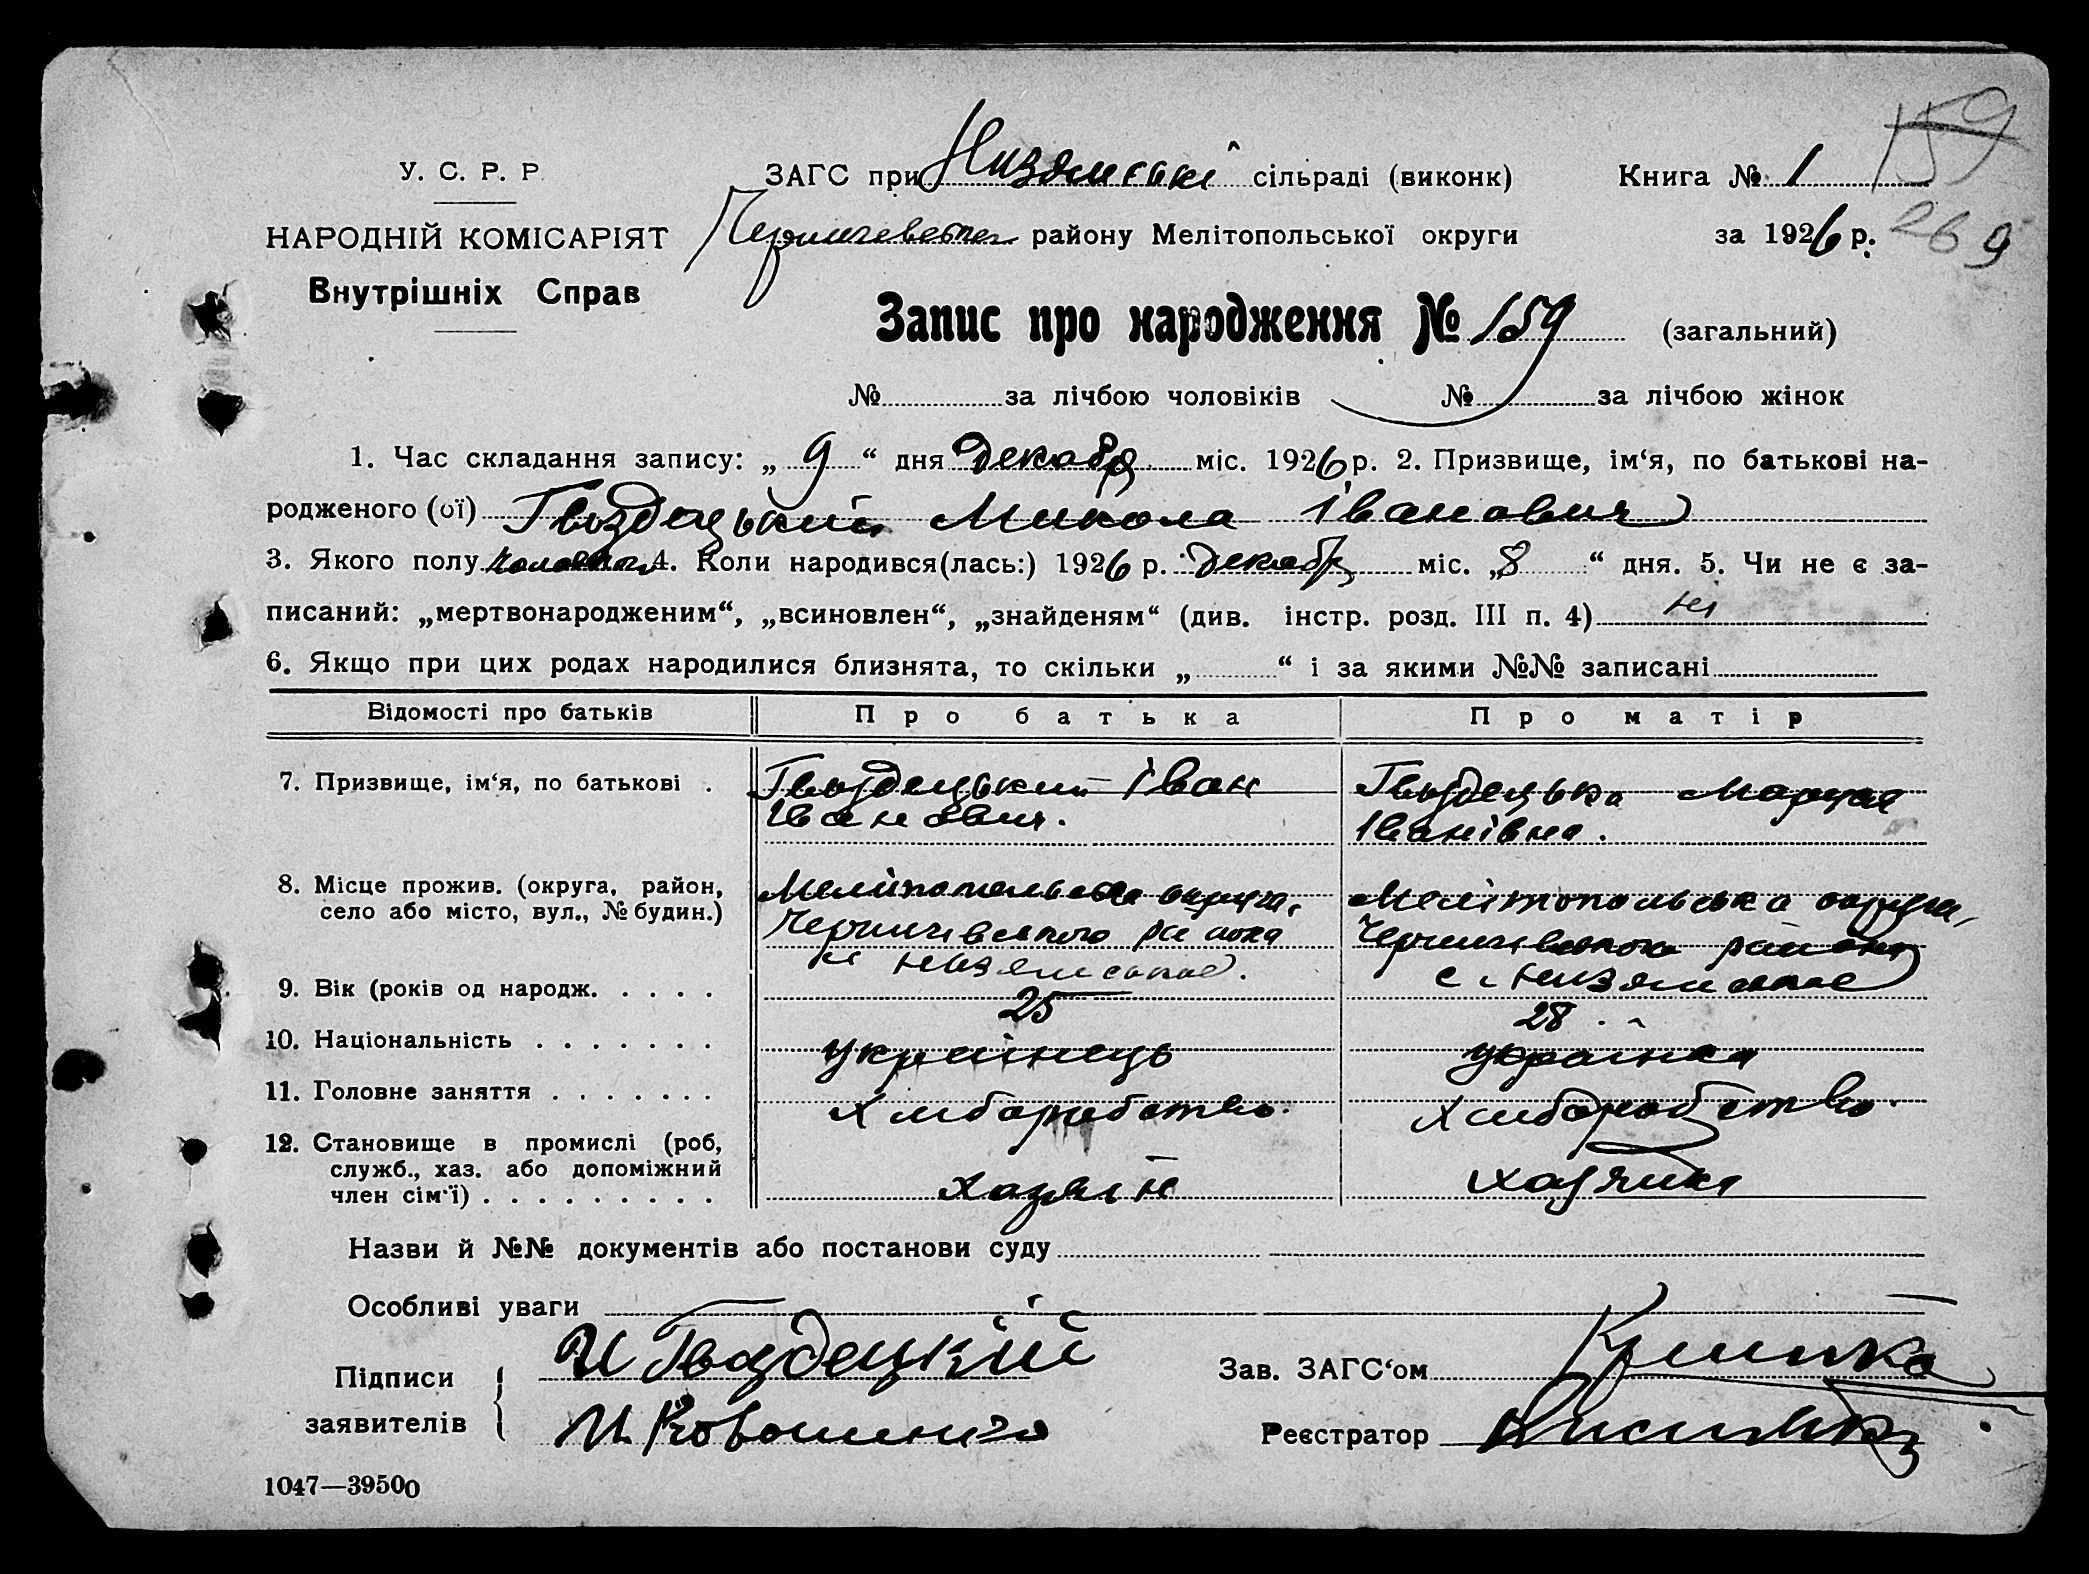 159
У. С. Р. Р.
ЗАГС при Низянській сільраді (виконк)
Книга № 1
НАРОДНІЙ КОМІСАРІЯТ
району Мелітопольської округи
за 1926 р.
269
Внутрішніх Справ
Запис про народження № 159 (загальний)
№ за лічбою чоловіків № за лічбою жінок
1. Час складання запису: „ 9 “ дня декабр міс. 1926 р. 2. Призвище, ім‘я, по батькові на-
родженого (ої) Гвоздецький Микола Іванович
3. Якого полу 4. Коли народився(лась:) 1926 р. декабр міс. „8 “ дня. 5. Чи не є за-
писаний: „мертвонародженим“, „всиновлен“, „знайденям“ (див. інстр. розд. III п. 4) ні
6. Якщо при цих родах народилися близнята, то скільки „ “ і за якими №№ записані
Відомості про батьків Про батька Про матір
7. Призвище, ім‘я, по батькові . Гвоздецький Іван Гвоздецька Мария
Іванович. Іванівна.
8. Місце прожив. (округа, район, Мелітопольська округа, Мелітопольська округа,
село або місто, вул., № будин.) Чернигівського района Чернигівського района
9. Вік (років од народж. . . . . 25 28
10. Національність . . . . . . . українець українка
11. Головне заняття . . . . . . . хлиборобство. хлиборобство.
12. Становище в промислі (роб,
служб., хаз. або допоміжний
член сім‘ї) . . . . . . . . . хазяін хазяйка
Назви й №№ документів або постанови суду
Особливі уваги
Підписи И Гвоздецкій Зав. ЗАГС‘ом
заявителів Реєстратор
1047—39500